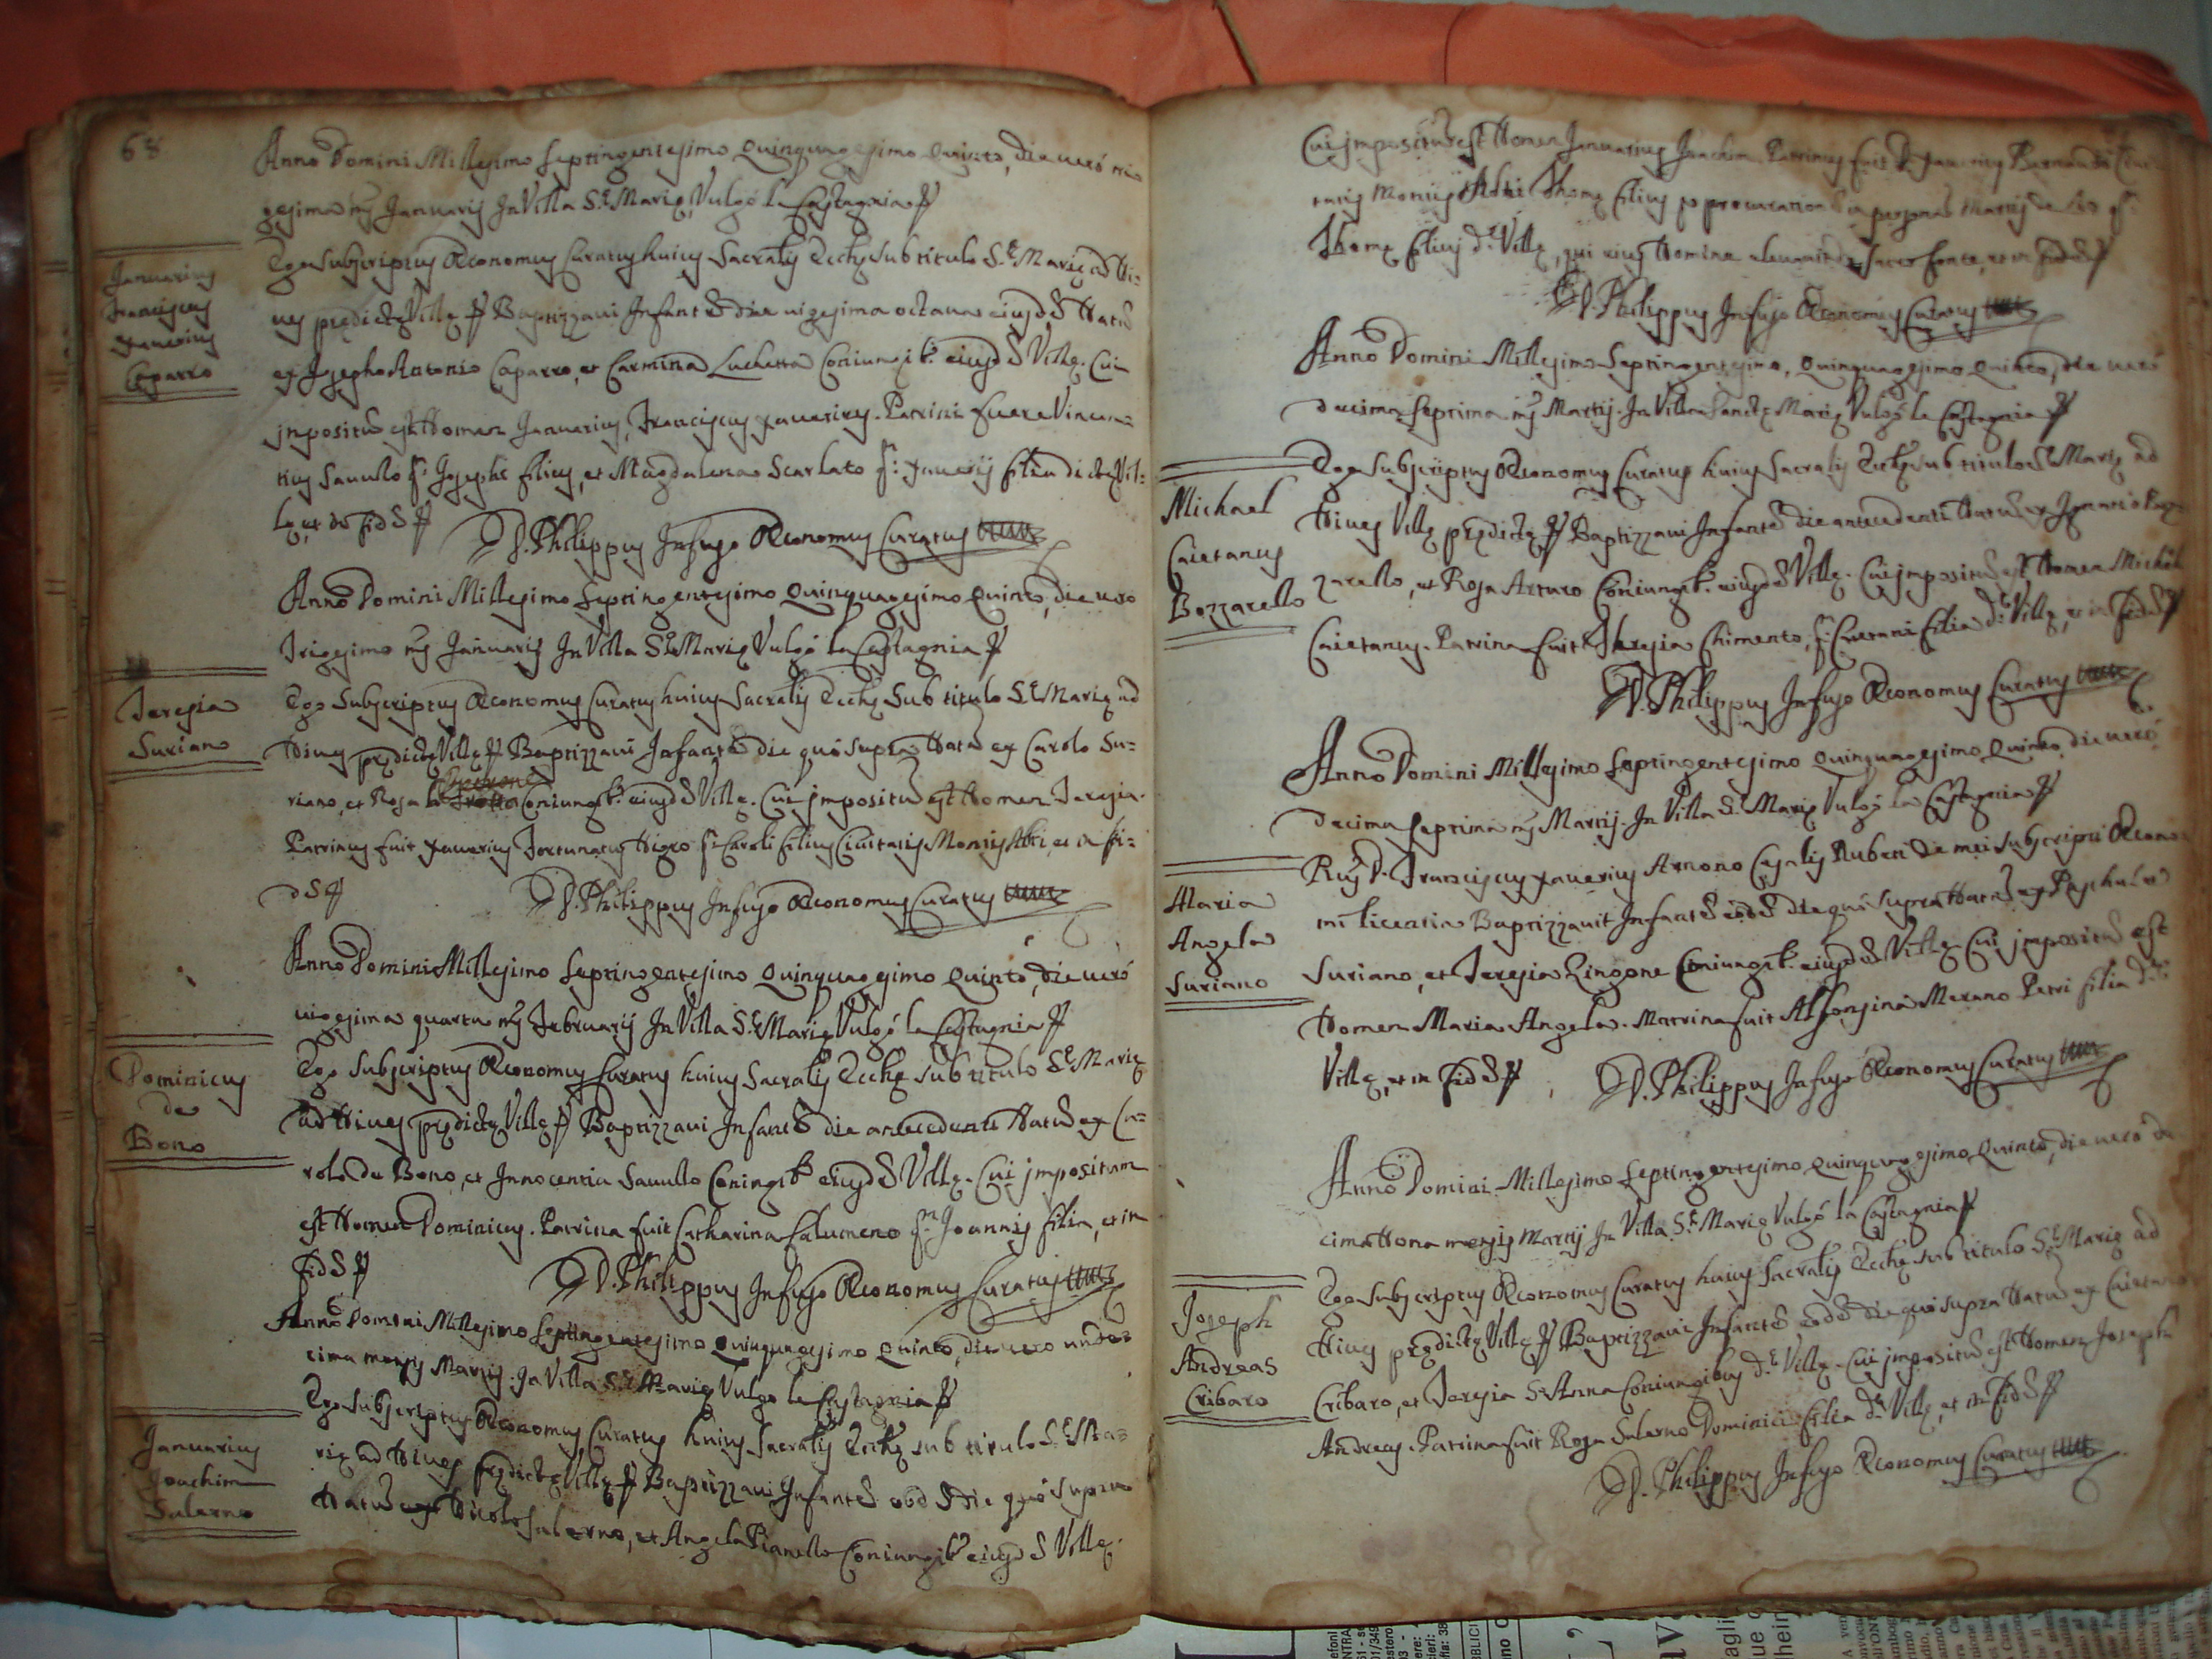 68
Anno Domini Millesimo Septingentesimo Quinquagesimo Quinto, die verò tri=
gesima ms Januarij In Villa Sæ Mariæ Vulgò la Castagnia
Januarius
Franciscus
Xaverius
Caparro
Ego Subscriptus Œconomus Curatus huius Sacralis Eccłæ sub titulo Sæ Mariæ ad Ni=
ves prędictę Villę Baptizzavi Infantē die vigesima octava eiusdē Natū
ex Josepho Antonio Caparro, et Carmina Luchetta Coniungib. eiusdē Villę. Cui
impositū est Nomen Januarius, Franciscus Xaverius. Patrini fuere Vincen=
tius Saullo Josephi filius, et Magdalena Scarlato Xaverij filia dictę Vil=
lę, et in fidē
D. Philippus Infuso Œconomus Curatus
Anno Domini Millesimo Septingentesimo Quinquagesimo Quinto, die vero
Trigesimo ms Januarij In Villa Sæ Mariæ Vulgò la Castagnia
Teresia
Suriano
Ego Subscriptus Œconomus Curatus huius Sacralis Eccłæ Sub titulo Sæ Mariæ ad
Nives prędictę Villę Baptizzavi Infantē die quò supra Natū ex Carolo Su=
riano, et Rosa Coniungib. eiusdē Villę. Cui impositū est Nomen Teresia.
Patrinus fuit Xaverius Fortunatus Nigro Caroli filius Civitatis Montis Alti, et in fi=
dē
D. Philippus Infuso Œconomus Curatus
Anno Domini Millesimo Septingentesimo Quinquagesimo Quinto, die verò
vigesima quarta ms Februarij In Villa Sæ Mariæ Vulgò la Castagnia
Dominicus
de
Bono
Ego Subscriptus Œconomus Curatus huius Sacralis Eccłæ sub titulo Sæ Mariæ
ad Nives prędictę Villę Baptizzavi Infantē die antecedente Natū ex Ca=
rolo de Bono, et Innocentia Saullo Coniugib. eiusdē Villę. Cui impositum
est Nomen Dominicus. Patrina fuit Catharina Calumeno Joannis filia, et in
fidē
D. Philippus Infuso Œconomus Curatus
Anno Domini Millesimo Septingentesimo Quinquagesimo Quinto, die vero unde=
cima mensis Martij. In Villa Sæ Mariæ Vulgo la Castagnia
Januarius
Joachim
Salerno
Ego Subscriptus Œconomus Curatus huius Sacralis Eccłæ sub titulo Sæ Ma=
riæ ad Nives prędictę Villę Baptizzavi Infantē eodē die quò supra
Natū ex Nicolò Salerno, et Angela Pianello Coniungib. eiusdē Villę.
Cui impositū est Nomen Januarius Joachim. Patrinus fuit Januarius Civi=
tatis Montis Alti Thomę filius procuratione in persona Martij de
Thomę filius dæ Villę, qui eius Nomine elevavit de Sacro fonte, et in fidē
D. Philippus Infuso Œconomus Curatus
Anno Domini Millesimo Septingentesimo, Quinquagesimo Quinto, die verò
decima Septima ms Martij. In Villa Sanctę Mariæ Vulgò la Castagnia
Michael
Caietanus
Bozzarello
Ego Subscriptus Œconomus Curatus huius Sacralis Eccłæ sub titulo Sæ Mariæ ad
Nives Villę prędictę Baptizzavi Infantē die antecedenti Natū ex Ignatio Boz=
zarello, et Rosa Arturo Coniungib. eiusdē Villę. Cui impositū est Nomen Michael
Caietanus. Patrina fuit Teresia Chimento, Caietani filia dæ Villę, et in fidē
D. Philippus Infuso Œconomus Curatus
Anno Domini Millesimo Septingentesimo Quinquagesimo Quinto, die verò
decima Septima ms Martij. In Villa Sæ Mariæ Vulgò la Castagnia
Maria
Angela
Suriano
D. Franciscus Xaverius Arnono Casalis Rubeti de mei Subscripti Œcono=
mi licentia Baptizzavit Infantē eodē die quò supra Natū ex Paschale
Suriano, et Teresia Zingone Coniungib. eiusdē Villę. Cui impositū est
Nomen Maria Angela. Matrina fuit Alfonsina Merano Petri filia dæ
Villę, et in fidē
D. Philippus Infuso Œconomus Curatus
Anno Domini Millesimo Septingentesimo Quinquagesimo Quinto, die verò de=
cima Nona mensis Martij In Villa Sæ Mariæ Vulgò la Castagnia
Joseph
Andreas
Cribaro
Ego Subscriptus Œconomus Curatus huius Sacralis Eccłæ sub titulo Sæ Mariæ ad
Nives prędictę Villę Baptizzavi Infantē eodē die quò supra Natū ex Caietano
Cribaro, et Teresia S. Anna Coniungibus dæ Villę. Cui impositū est Nomen Joseph
Andreas. Patrina fuit Rosa Salerno Dominici filia dæ Villę, et in fidē
D. Philippus Infuso Œconomus Curatus